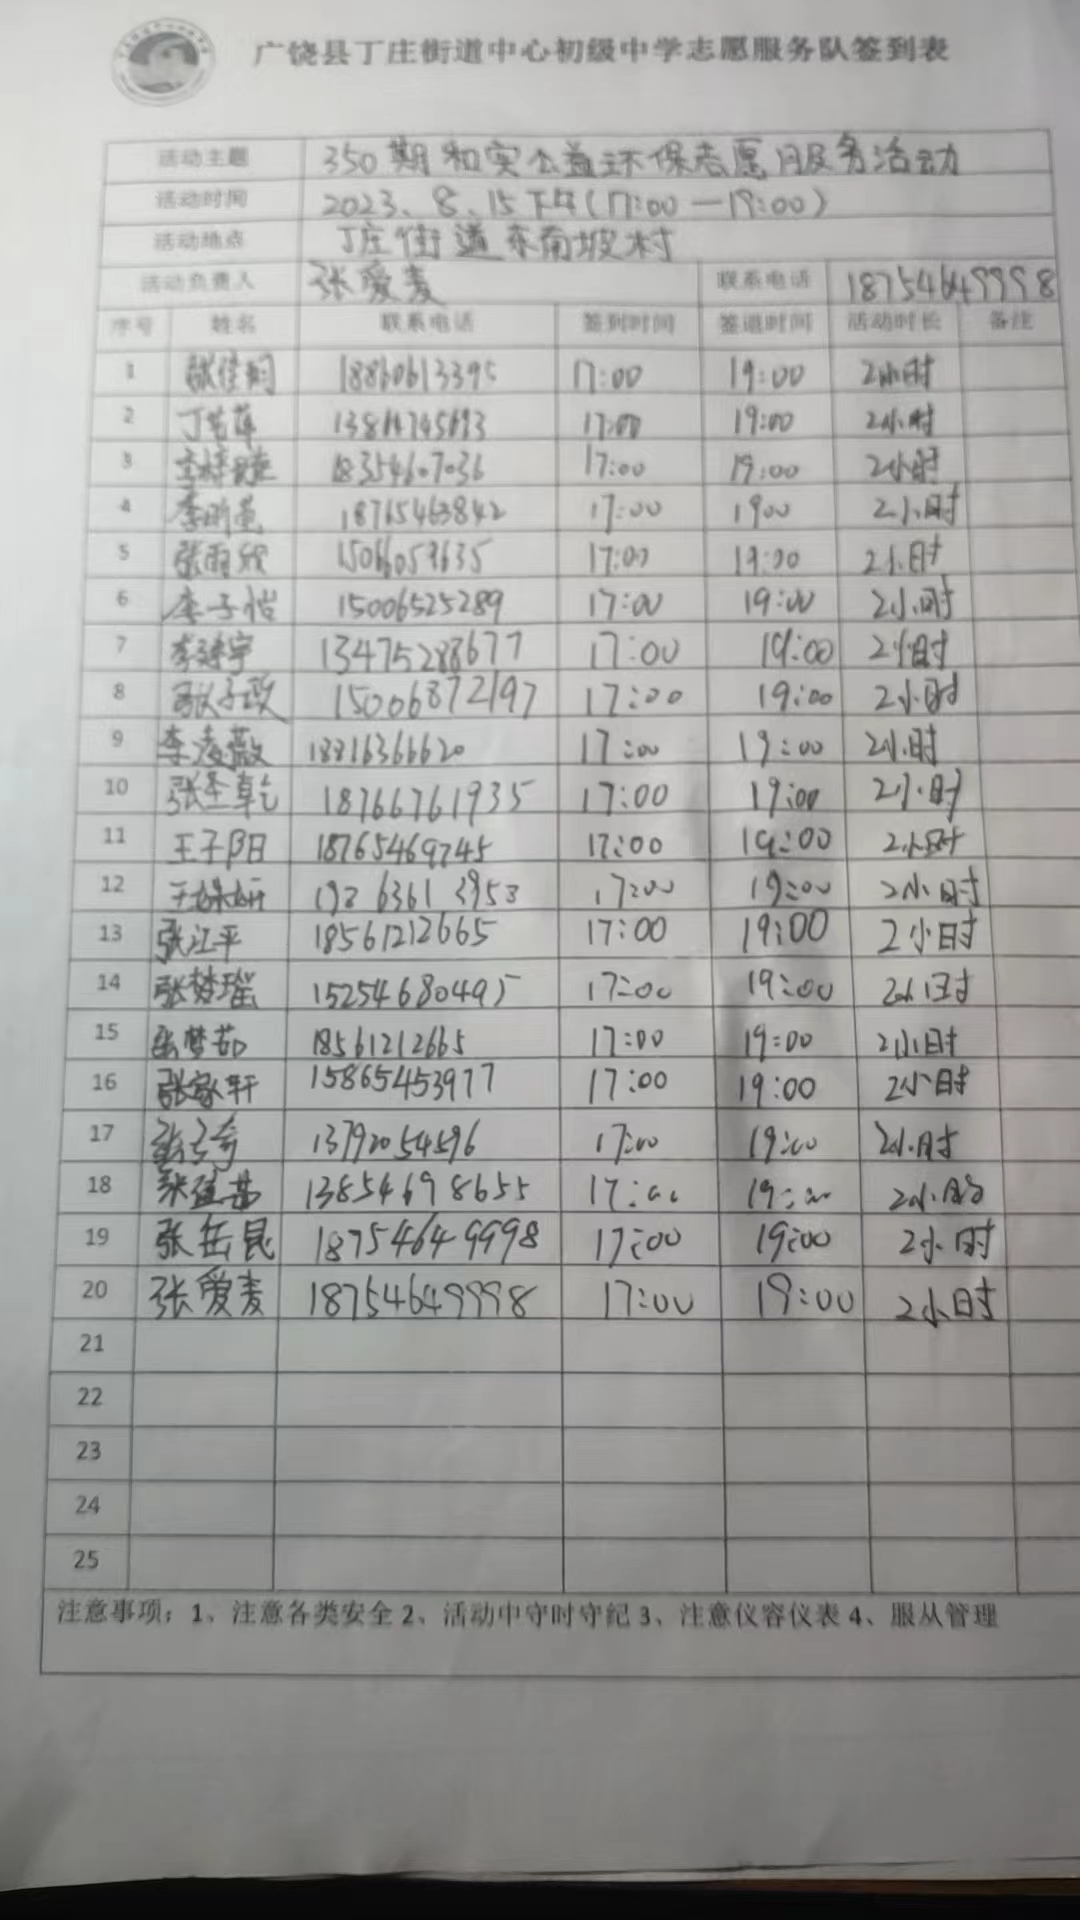 广饶县丁庄街道中心初级中学志愿服务队签到表
活动主题 350期和实公益环保志愿服务活动
活动时间 2023、8、15下午(17:00—19:00)
活动地点 丁庄街道东南坡村
活动负责人 张爱麦 联系电话 18754649998
序号 姓名 联系电话 签到时间 签退时间 活动时长 备注
1 18860613395 17:00 19:00 2小时
2 17:00 19:00 2小时
3 18354607036 17:00 19:00 2小时
4 18765463842 17:00 1900 2小时
5 张雨欣 15066059635 17:00 19:00 2小时
6 李子怡 15006525289 17:00 19:00 2小时
7 李建宇 13475288677 17:00 19:00 2小时
8 15006872197 17:00 19:00 2小时
9 李凌薇 18816366620 17:00 19:00 2小时
10 张圣乾 18766761935 17:00 19:00 2小时
11 王子阳 18765469745 17:00 19:00 2小时
12 17:00 19:00 2小时
13 张江平 18561212665 17:00 19:00 2小时
14 张梦瑶 15254680495 17:00 19:00 2小时
15 张梦茹 18561212665 17:00 19:00 2小时
16 张家轩 15865453977 17:00 19:00 2小时
17 13792054596 17:00 19:00 2小时
18 13854698655 17:00 19:00 2小时
19 张岳昆 18754649998 17:00 19:00 2小时
20 张爱麦 18754649998 17:00 19:00 2小时
21
22
23
24
25
注意事项：1、注意各类安全 2、活动中守时守纪 3、注意仪容仪表 4、服从管理